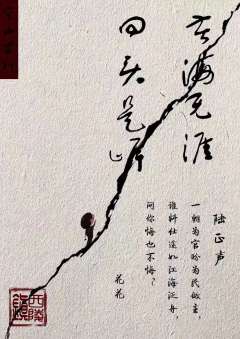 苦海无涯
回头是岸
陆正声
一朝为官盼为民做主，
谁料仕途如江海泛舟，
问你悔也不悔？
花花